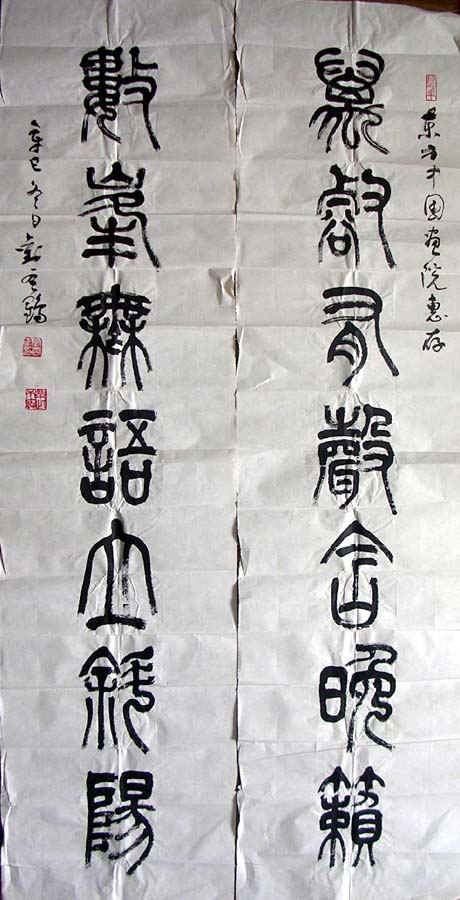 東方中國畫院惠存
萬壑有聲含晚籟
數峯無語立斜陽
辛巳冬日